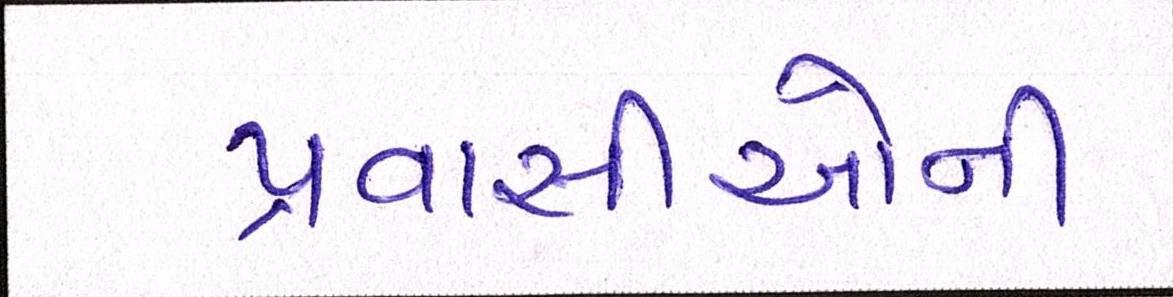 પ્રવાસીઓની